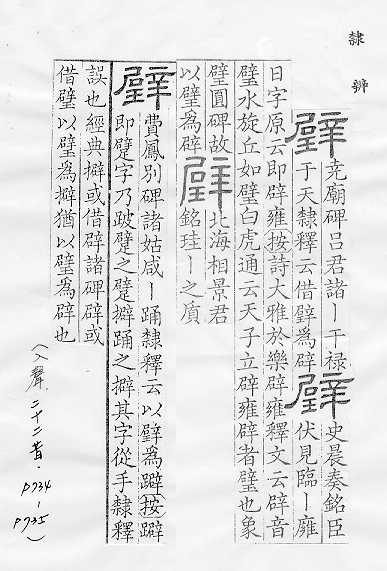 隸辨
璧
堯廟碑呂君諸丨干祿
于天隸釋云借璧為辟
璧
史晨奏銘臣
伏見臨丨雍
日字原云即辟雍按詩大雅於樂辟雍釋文云辟音
璧水旋丘如璧白虎通云天子立辟雍辟者璧也象
璧圓碑故
以璧為辟
璧
北海相景君
銘珪丨之質
璧
費鳳別碑諸姑咸丨踊隸釋云以璧為躃按躃
即躄字乃跛躄之躄擗踊之擗其字從手隸釋
誤也經典擗或借辟諸碑辟或
借璧以璧為擗猶以璧為辟也
(入聲.二十二昔.P734-
P735)